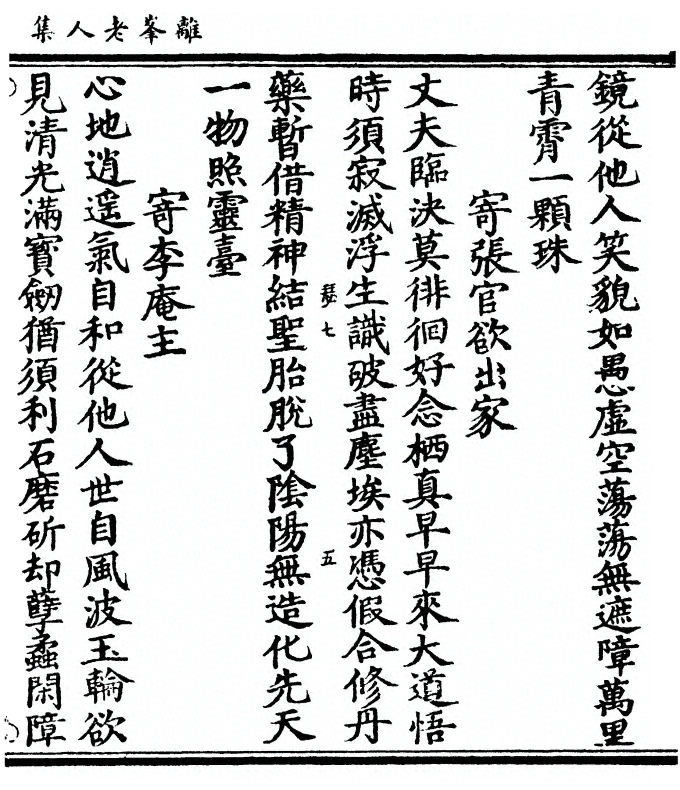 離峯老人集
鏡從他人笑貌如愚虛空蕩蕩無遮障萬里
青霄一顆珠
寄張官欲出家
丈夫臨決莫徘徊好念栖真早早來大道悟
時須寂滅浮生識破盡塵埃亦憑假合修丹
瑟七
五
藥暫借精神結聖胎脫了陰陽無造化先天
一物照靈臺
寄李庵主
心地逍遥氣自和從他人世自風波玉輪欲
見清光滿寶劒猶須利石磨斫却孽蟊閑障